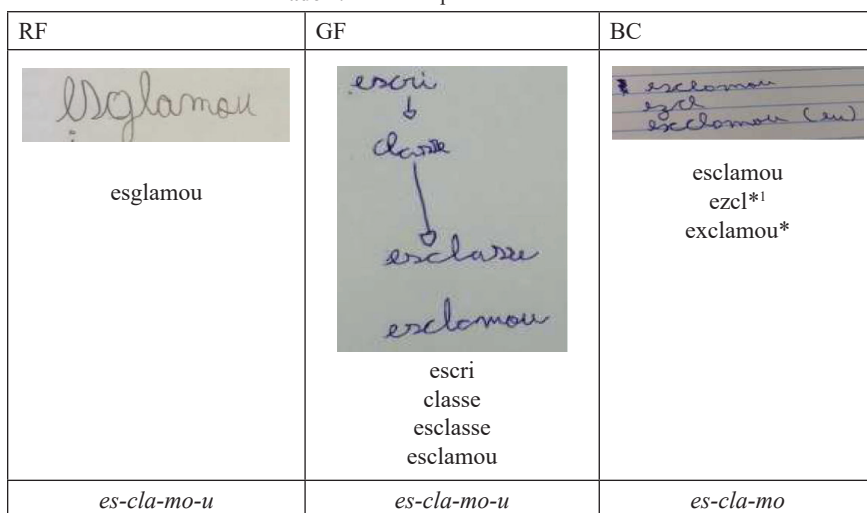 RF
GF
BC
esglamou
esglamou
escri
classe
esclasse
esclamou
escri
classe
esclasse
esclamou
esclamou
ezcl
exclamou (eu)
esclamou
ezcl*1
exclamou*
es-cla-mo-u
es-cla-mo-u
es-cla-mo